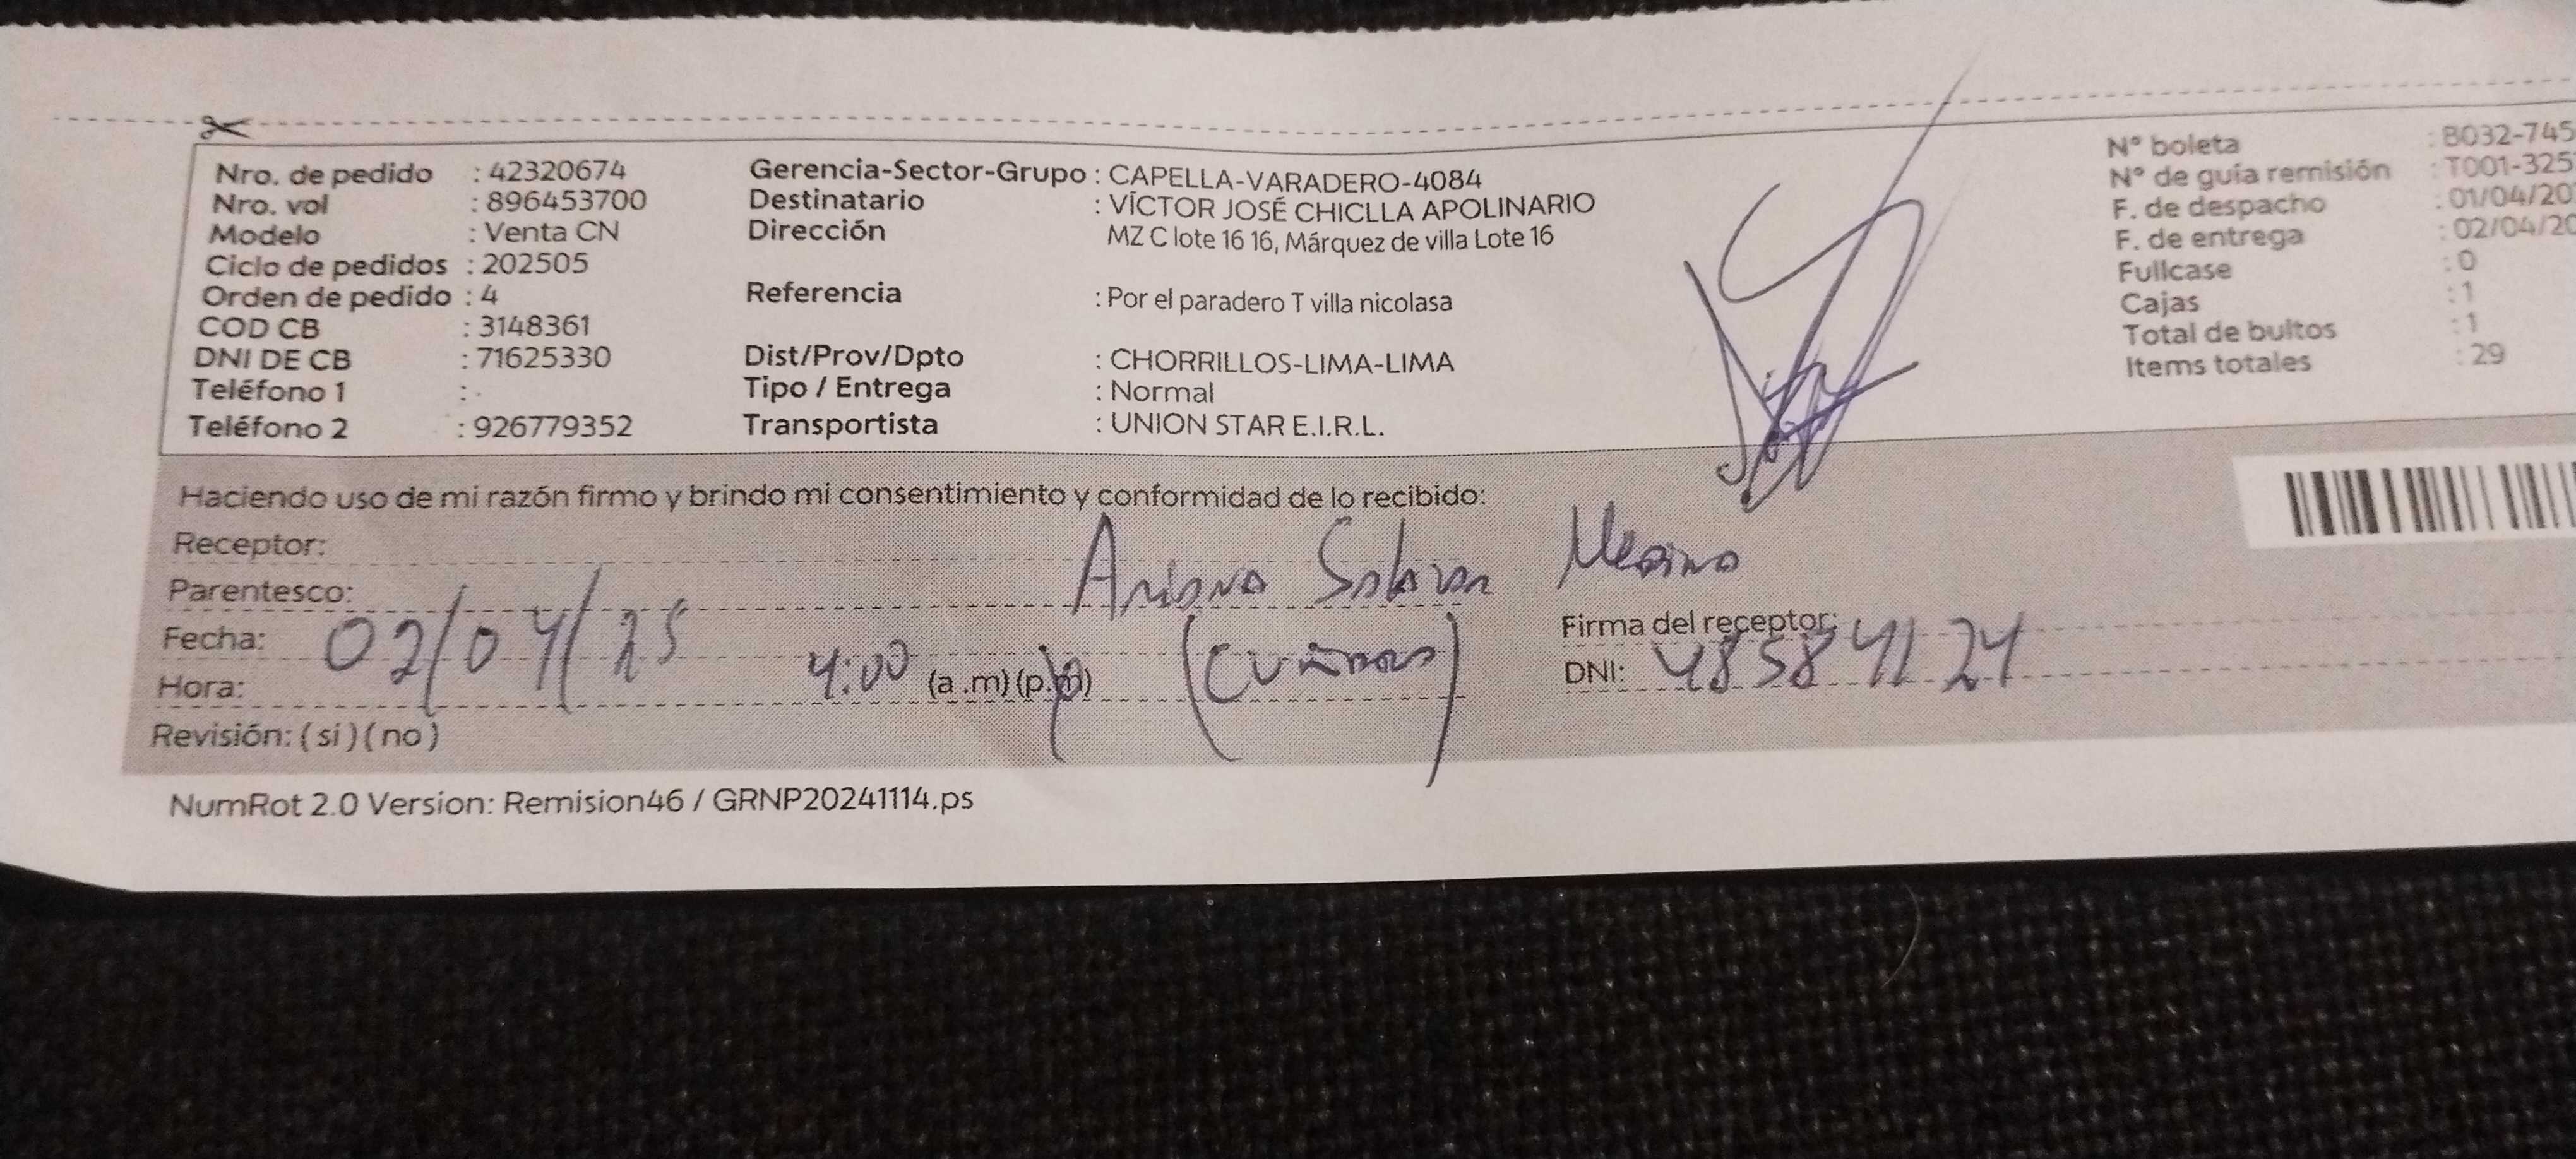 Nro. de pedido : 42320674
Nro. vol : 896453700
Modelo : Venta CN
Ciclo de pedidos : 202505
Orden de pedido : 4
COD CB : 3148361
DNI DE CB : 71625330
Teléfono 1 : -
Teléfono 2 : 926779352
Gerencia-Sector-Grupo : CAPELLA-VARADERO-4084
Destinatario : VÍCTOR JOSÉ CHICLLA APOLINARIO
Dirección MZ C lote 16 16, Márquez de villa Lote 16
Referencia : Por el paradero T villa nicolasa
Dist/Prov/Dpto : CHORRILLOS-LIMA-LIMA
Tipo / Entrega : Normal
Transportista : UNION STAR E.I.R.L.
N° boleta : B032-745
N° de guía remisión : T001-325
F. de despacho : 01/04/20
F. de entrega : 02/04/20
Fullcase : 0
Cajas : 1
Total de bultos : 1
Items totales : 29
Haciendo uso de mi razón firmo y brindo mi consentimiento y conformidad de lo recibido:
Receptor:
Ariana Salazar
Parentesco:
Fecha: 02/04/25
Firma del receptor:
Hora: 4:00 (a .m) (p.m)
DNI:
Revisión: ( si ) ( no )
NumRot 2.0 Version: Remision46 / GRNP20241114.ps